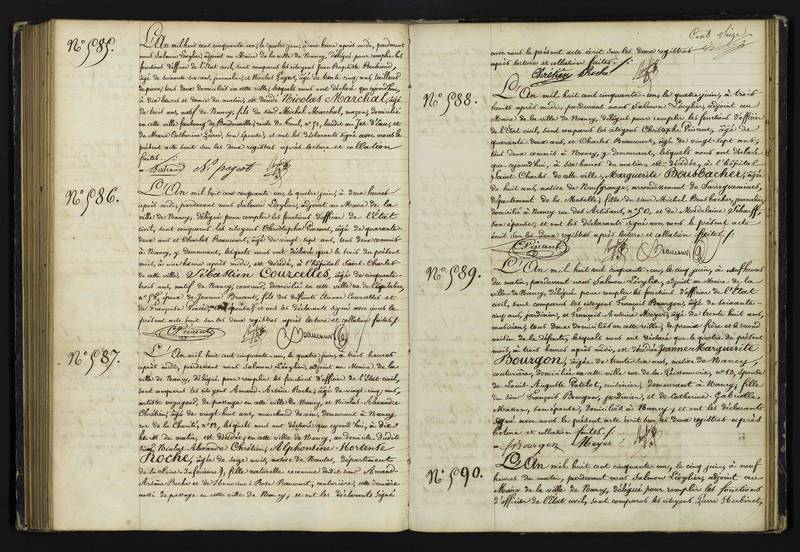 N° 585.
L'An mil huit cent cinquante-un, le quatre juin, à une heure après midi, pardevant
nous Salmon Lévylier, adjoint au Maire de la ville de Nancy, délégué pour remplir les
fonctions d'officier de l'état civil, sont comparus les citoyens Jean Baptiste
âgé de soixante six ans, journalier, et Nicolas Paquot, âgé de trente cinq ans, tailleur
de pierre, tout deux domiciliés en cette ville, lesquels nous ont déclaré que aujourd'hui,
à dix heures et demie du matin, est décédé Nicolas Marchal, âgé
de trois ans, natif de Nancy, fils de Michel Marchal, maçon, domicilié
en cette ville, faubourg de
et de Marie Catherine son épouse; et ont les déclarants signé avec nous le
présent acte écrit sur les deux registres après lecture et collation
faites.
N. paquot
N° 586.
L'An mil huit cent cinquante-un, le quatre juin, à deux heures
après midi, pardevant nous Salmon Lévylier, adjoint au Maire de la
ville de Nancy, délégué pour remplir les fonctions d'officier de l'Etat
civil, sont comparus les citoyens Christophe Pierrent, âgé de quarante
deux ans et Charles Beaucourt, âgé de vingt sept ans, tous deux commis
à Nancy, y demeurant, lesquels nous ont déclaré que le trois du présent
mois, à une heure après midi, est décédé, à l'hôpital Saint Charles
de cette ville, Sébastien Courcelles, âgé de cinquante
trois ans, natif de Nancy, domicilié en cette ville rue de
époux de Jeanne fils des défunts Etienne Courcelles et
de Françoise et ont les déclarants signé avec nous le
présent acte écrit sur les deux registres après lecture et collation faites.
C. Pierrent Beaucourt
N° 587.
L'An mil huit cent cinquante-un, le quatre juin, à trois heures
après midi, pardevant nous Salmon Lévylier, adjoint au Maire de la
ville de Nancy, délégué pour remplir les fonctions d'officier de l'Etat civil,
sont comparus les citoyens Armand Artème Roche, âgé de vingt cinq ans,
artiste voyageur, de passage en cette ville de Nancy, et Nicolas Alexandre
Chrétien, âgé de vingt huit ans, marchand de vin, demeurant à Nancy
rue de la Charité, n° 12, lesquels nous ont déclaré que aujourd'hui, à dix
heures du matin, est décédée, en cette ville de Nancy, au domicile dudit
Nicolas Alexandre Chrétien, Alphonsine Hortense
Roche, âgée de seize mois, native de Nantes, département
de la Loire Inférieure, fille naturelle reconnue dudit Armand
Artème Roche et de Rose couturière, cette dernière
aussi de passage en cette ville de Nancy, et ont les déclarants signé
Cent Seize
avec nous le présent acte écrit sur les deux registres
après lecture et collation faites.
Chrétien Roche
N° 588.
L'An mil huit cent cinquante-un, le quatre juin, à trois
heures après midi, pardevant nous Salmon Lévylier, adjoint au
Maire de la ville de Nancy, délégué pour remplir les fonctions d'officier
de l'Etat civil, sont comparus les citoyens Christophe Pierrent, âgé de
quarante deux ans, et Charles Beaucourt, âgé de vingt sept ans,
tous deux commis à Nancy, y demeurant, lesquels nous ont déclaré
que aujourd'hui, à six heures du matin, est décédée, à l'hôpital
Saint Charles de cette ville, Marguerite Bousbacher, âgée
de huit ans, native de arrondissement de Sarreguemines,
département de la Moselle, fille de Michel Bousbacher, journalier,
domicilié à Nancy rue des Artisans, n° 50, et de Madeleine
son épouse; et ont les déclarants signé avec nous le présent acte
écrit sur les deux registres après lecture et collation faites.
C. Pierrent Beaucourt
N° 589.
L'An mil huit cent cinquante-un, le cinq juin, à neuf heures
du matin, pardevant nous Salmon Lévylier, adjoint au Maire de la
ville de Nancy, délégué pour remplir les fonctions d'officier de l'Etat
civil, sont comparus les citoyens François Bourgon, âgé de soixante-
cinq ans, jardinier, et François Antoine Meyer, âgé de trente huit ans,
musicien, tous deux domiciliés en cette ville; le premier père et le second
voisin de la défunte, lesquels nous ont déclaré que le quatre du présent
mois, à trois heures après midi, est décédée Jeanne Marguerite
Bourgon, âgée de trente six ans, native de Nancy,
couturière, domiciliée en cette ville rue de la Poissonnerie, n° 13, épouse
de Louis Auguste cuisinier, demeurant à Nancy; fille
de François Bourgon, jardinier, et de Catherine Gabrielle
Masson, son épouse, domiciliés à Nancy; et ont les déclarants
signé avec nous le présent acte écrit sur les deux registres après
lecture et collation faites.
Bourgon Meyer
N° 590.
L'An mil huit cent cinquante-un, le cinq juin, à neuf
heures du matin, pardevant nous Salmon Lévylier, adjoint au
Maire de la ville de Nancy, délégué pour remplir les fonctions
d'officier de l'Etat civil, sont comparus les citoyens Pierre Herbinet,